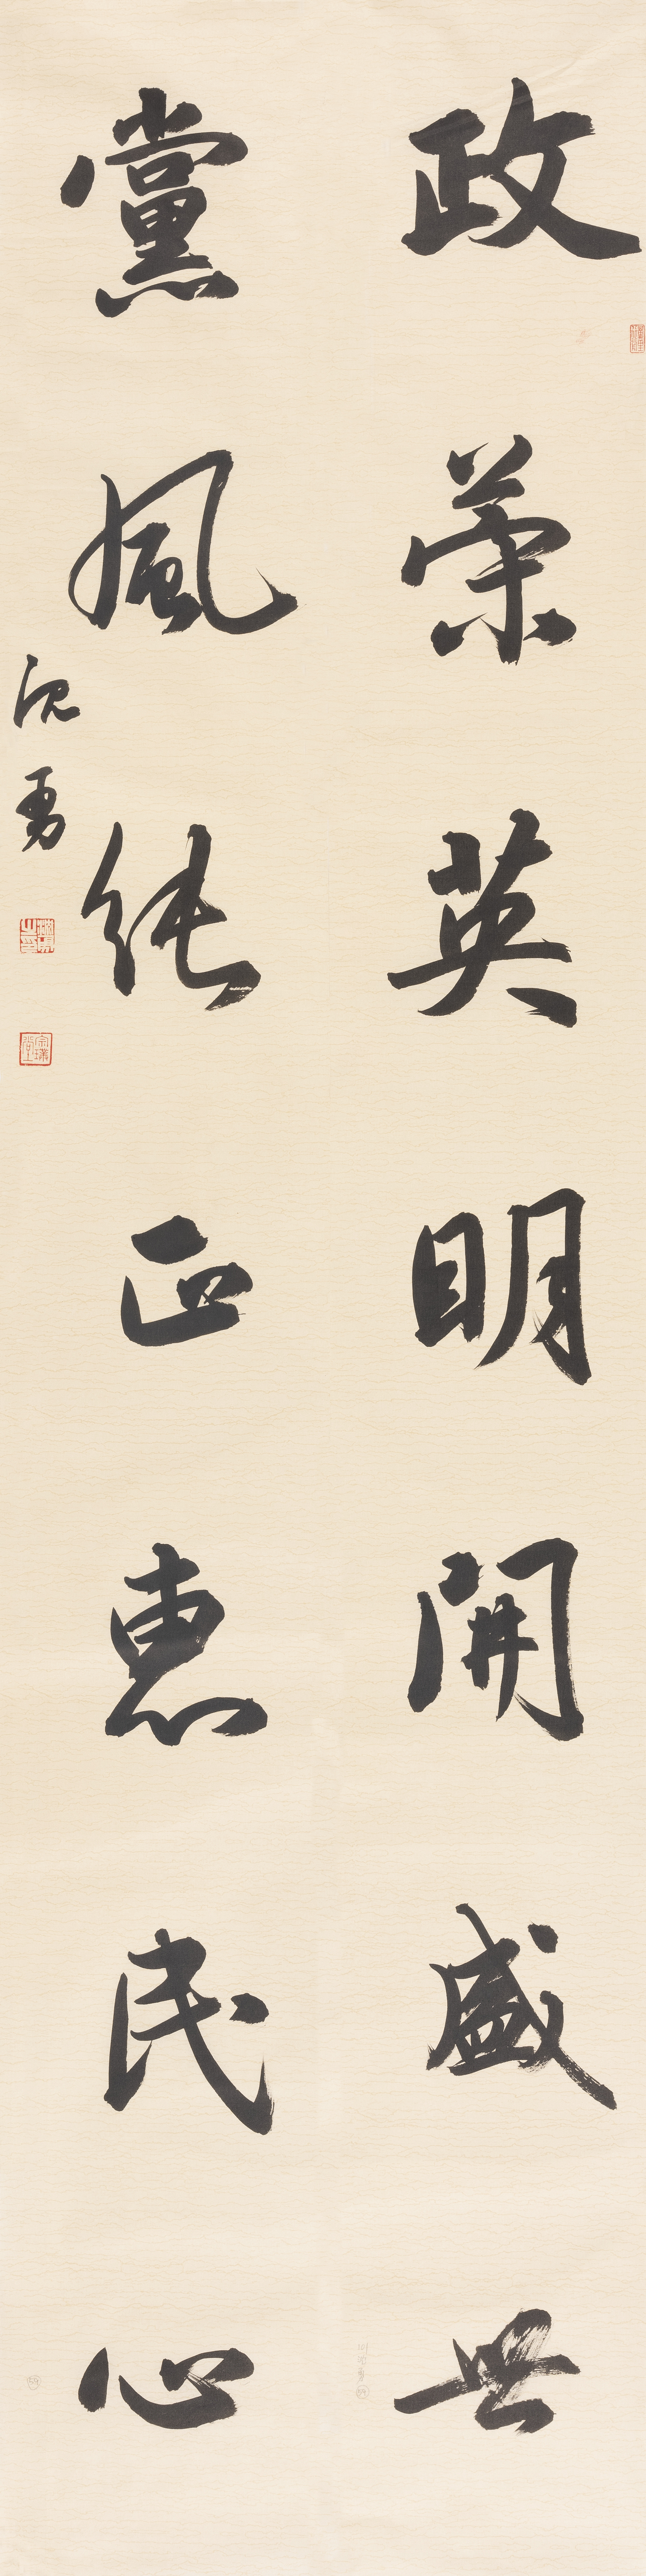 政策英明開盛世
黨風純正惠民心
沈勇